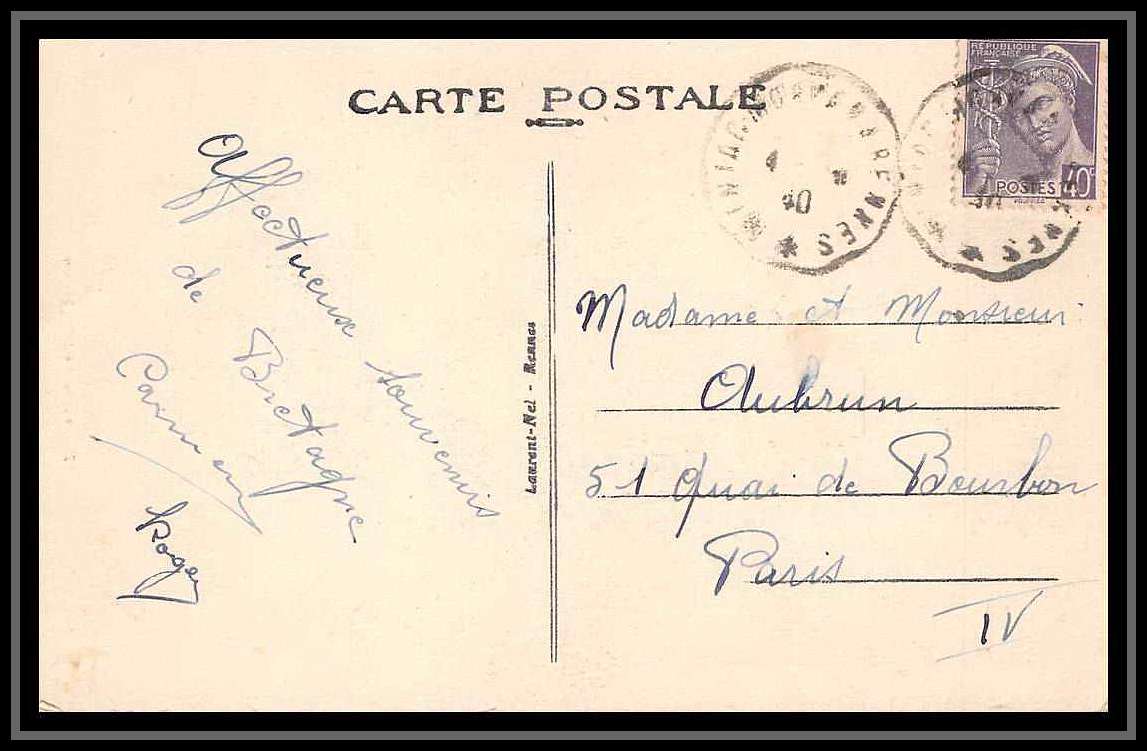 CARTE POSTALE
RÉPUBLIQUE
FRANÇAISE
POSTES 40c
RENNES
40
Affectueux souvenirs
de Bretagne
Carmen
Roger
Laurent-Nel - Rennes
Madame et Monsieur
Aubrun
51 Quai de Bourbon
Paris
IV